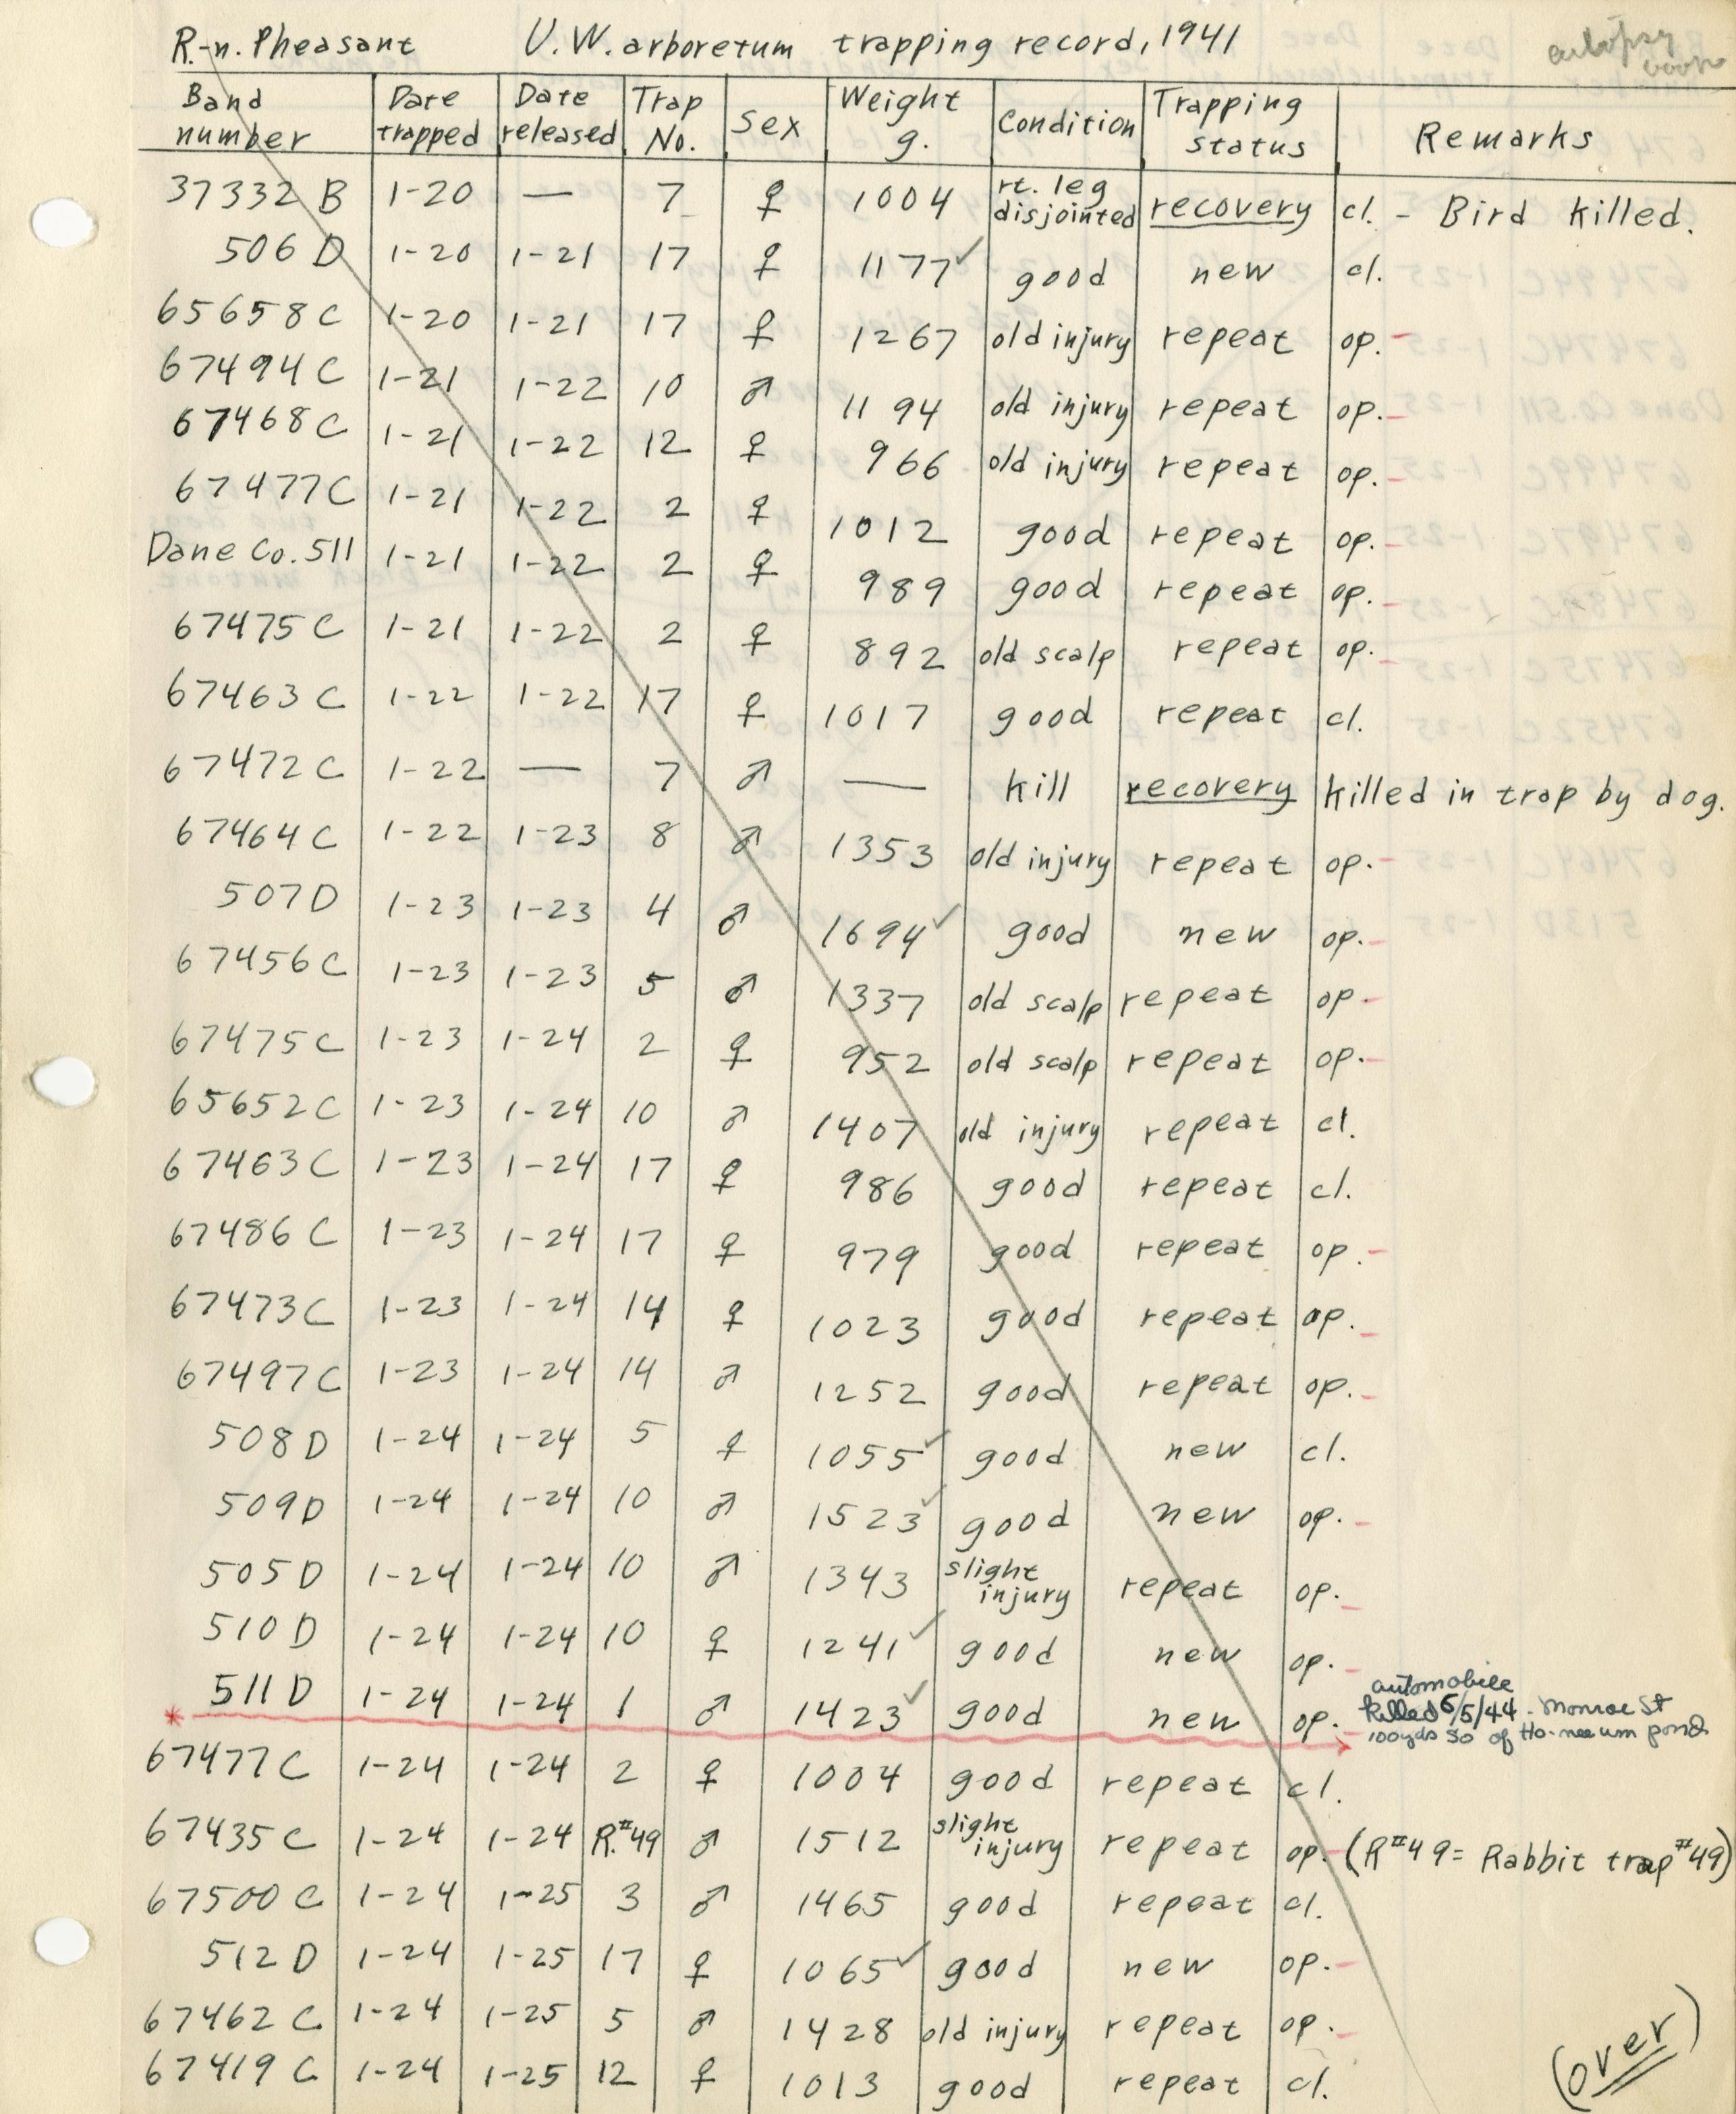 R.-n. Pheasant U.W. arboretum trapping record, 1941
autopsy
Band number Date trapped Date released Trap No. Sex Weight g. Condition Trapping status Remarks
37332 B 1-20 — 7 ♀ 1004 rt. leg disjointed recovery cl. - Bird killed.
506 D 1-20 1-21 17 ♀ 1177 ✓ good new cl.
65658 C 1-20 1-21 17 ♀ 1267 old injury repeat op. -
67494 C 1-21 1-22 10 ♂ 1194 old injury repeat op. -
67468 C 1-21 1-22 12 ♀ 966 old injury repeat op. -
67477 C 1-21 1-22 2 ♀ 1012 good repeat op. -
Dane Co. 511 1-21 1-22 2 ♀ 989 good repeat op. -
67475 C 1-21 1-22 2 ♀ 892 old scalp repeat op. -
67463 C 1-22 1-22 17 ♀ 1017 good repeat cl.
67472 C 1-22 — 7 ♂ — kill recovery killed in trap by dog.
67464 C 1-22 1-23 8 ♂ 1353 old injury repeat op. -
507 D 1-23 1-23 4 ♂ 1694 ✓ good new op. -
67456 C 1-23 1-23 5 ♂ 1337 old scalp repeat op -
67475 C 1-23 1-24 2 ♀ 952 old scalp repeat op. -
65652 C 1-23 1-24 10 ♂ 1407 old injury repeat cl.
67463 C 1-23 1-24 17 ♀ 986 good repeat cl.
67486 C 1-23 1-24 17 ♀ 979 good repeat op. -
67473 C 1-23 1-24 14 ♀ 1023 good repeat op. -
67497 C 1-23 1-24 14 ♂ 1252 good repeat op. -
508 D 1-24 1-24 5 ♀ 1055 ✓ good new cl.
509 D 1-24 1-24 10 ♂ 1523 ✓ good new op. -
505 D 1-24 1-24 10 ♂ 1343 slight injury repeat op. -
510 D 1-24 1-24 10 ♀ 1241 ✓ good new op. -
* 511 D 1-24 1-24 1 ♂ 1423 ✓ good new op. - automobile killed 6/5/44 - Monroe St 100yds so of Ho-nee um pond
67477 C 1-24 1-24 2 ♀ 1004 good repeat cl.
67435 C 1-24 1-24 R.#49 ♂ 1512 slight injury repeat op. - (R#49 = Rabbit trap #49)
67500 C 1-24 1-25 3 ♂ 1465 good repeat cl.
512 D 1-24 1-25 17 ♀ 1065 ✓ good new op. -
67462 C 1-24 1-25 5 ♂ 1428 old injury repeat op. -
67419 C 1-24 1-25 12 ♀ 1013 good repeat cl.
(over)